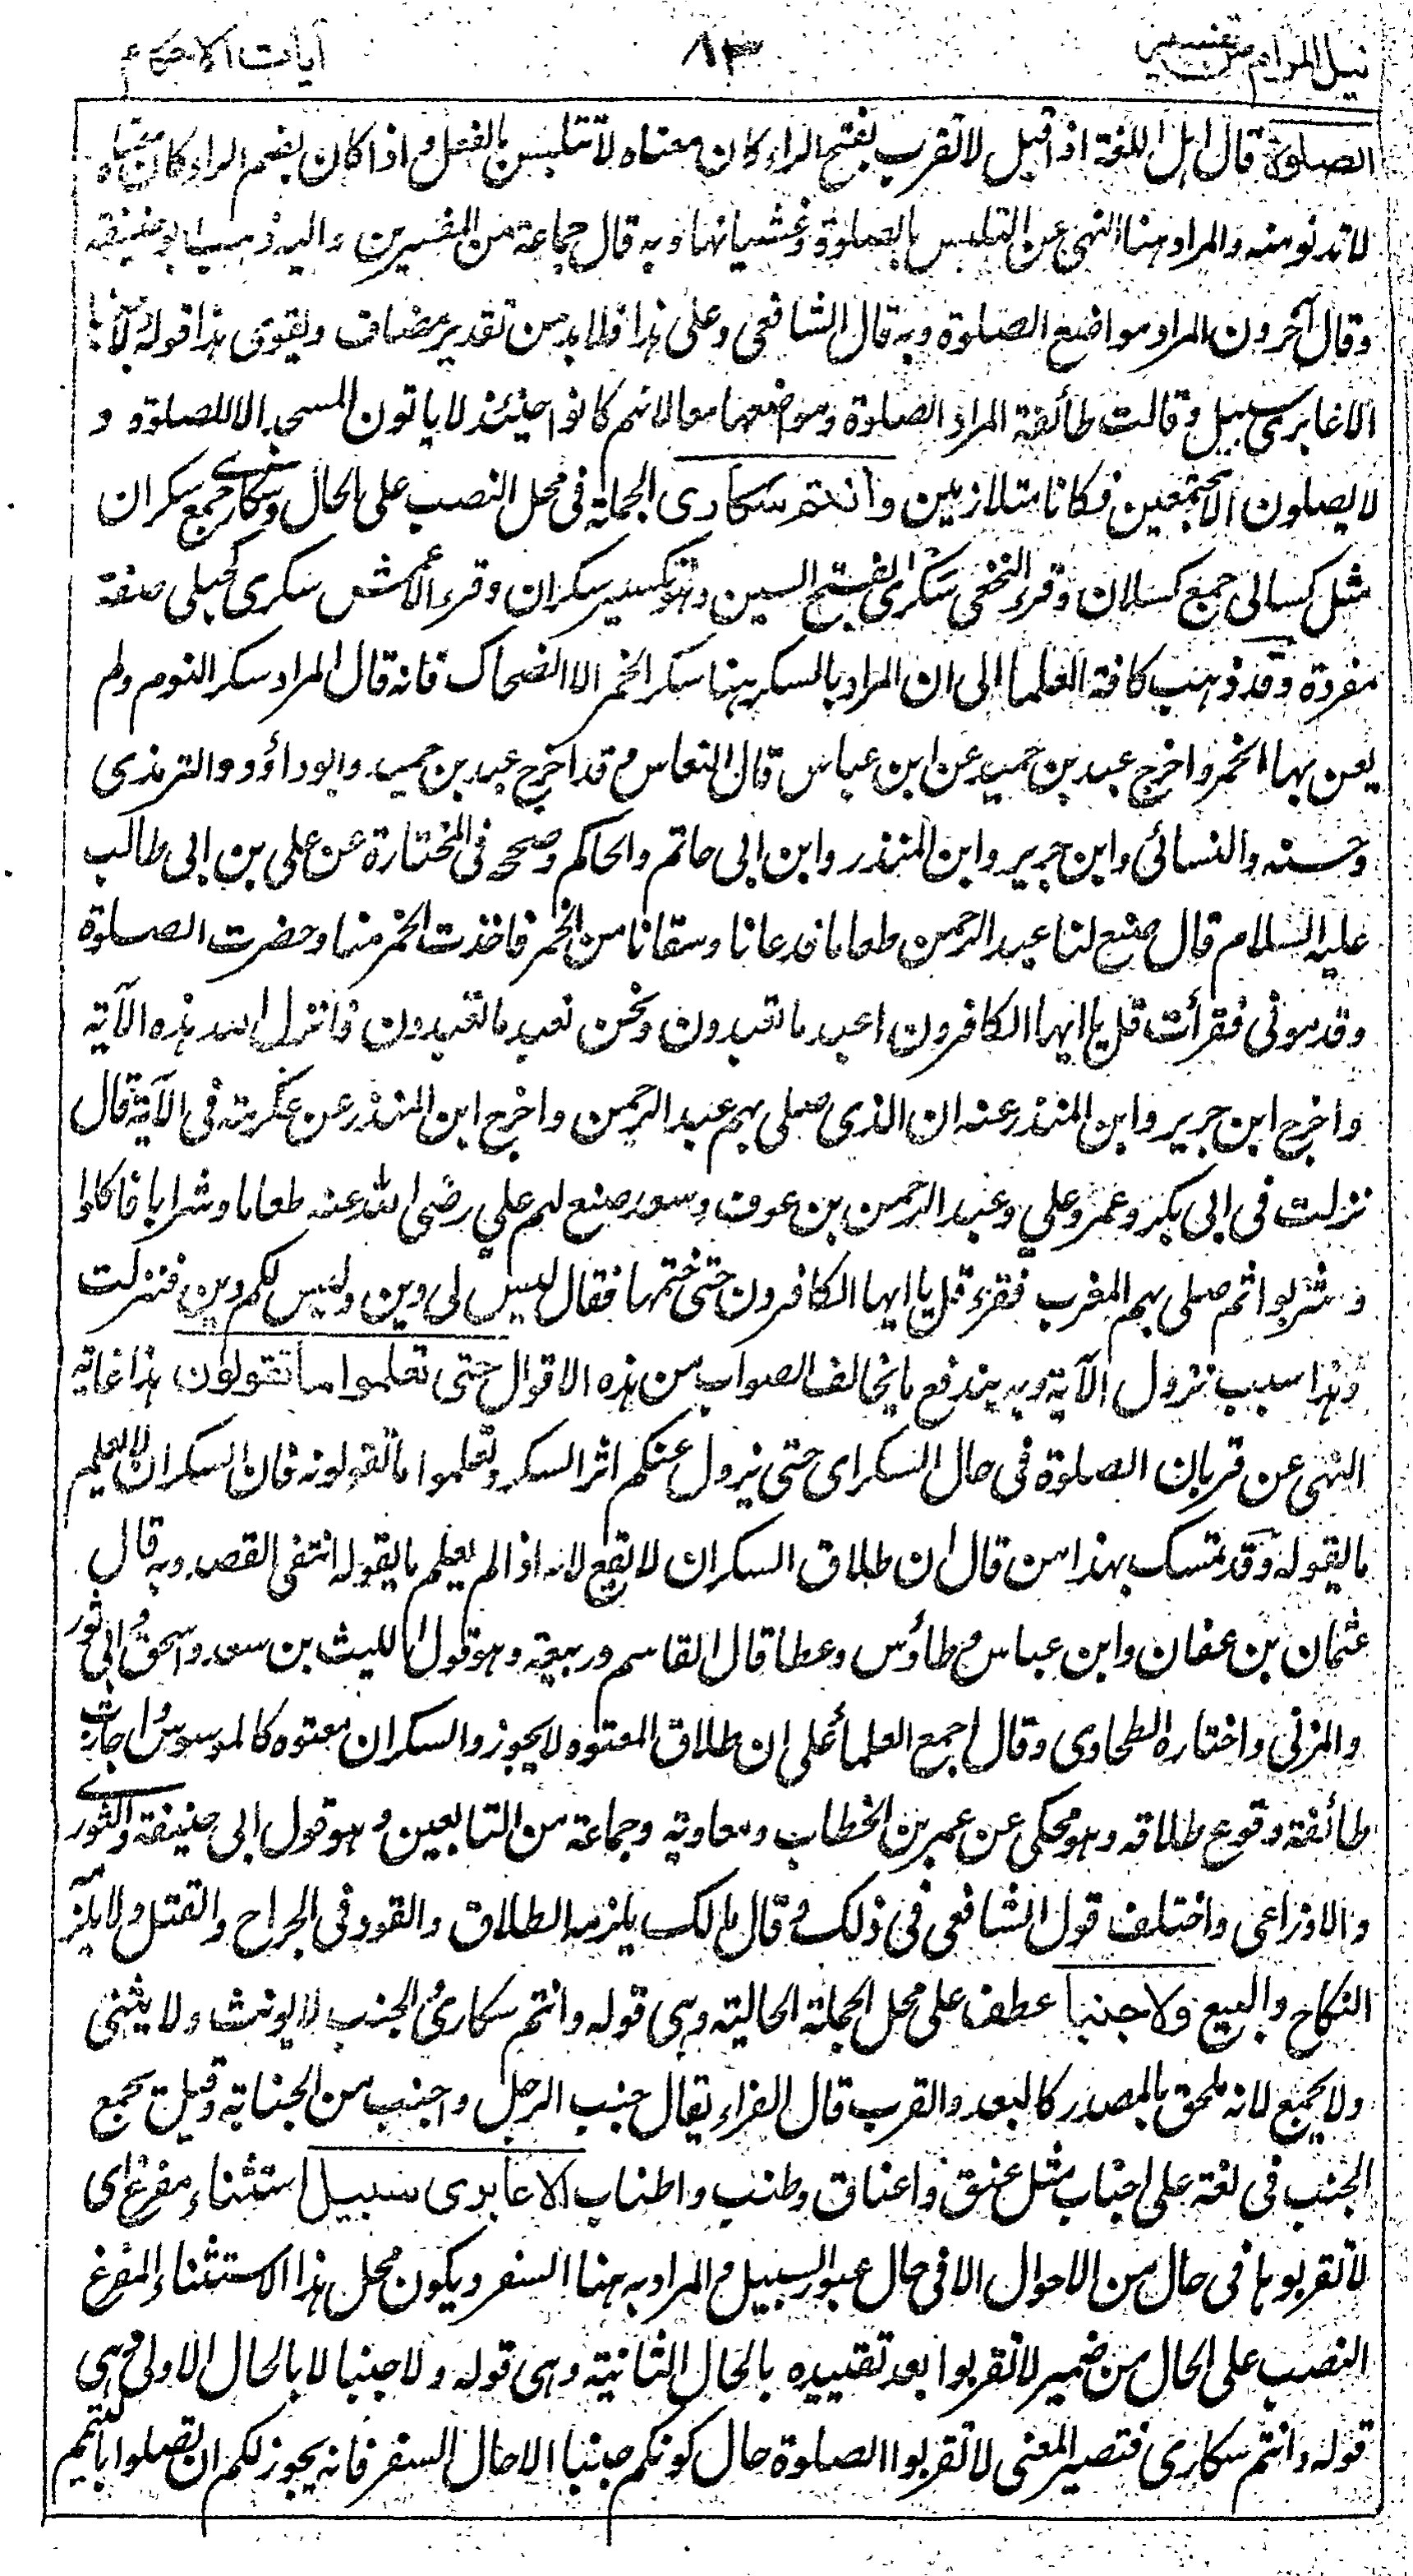 نيل المرام من تفسير ٨٣ آيات الاحكام
الصلوة قال اهل اللغة اذا قيل لا تقرب بفتح الراء كان معناه لا تتلبس بالفعل واذا كان بضم الراء كان معناه
لا تدنو منه والمراد هنا النهى عن التلبس بالصلوة وغشيانها وبه قال جماعة من المفسرين واليه ذهب ابو حنيفة
وقال آخرون المراد مواضع الصلوة وبه قال الشافعى وعلى هذا فلا بد من تقدير مضاف ويقوى هذا قوله ولا جنبا
الا عابرى سبيل وقالت طائفة المراد الصلوة ومواضعها معا لانهم كانوا حينئذ لا ياتون المسجد الا للصلوة و
لا يصلون الا مجتمعين فكانا متلازمين وانتم سكارى الجملة فى محل النصب على الحال وسكارى جمع سكران
مثل كسالى جمع كسلان وقرء النخعى سكرى بفتح السين وهو تكسير سكران وقرء الأعمش سكرى كحبلى صفة
مفردة وقد ذهب كافة العلما الى ان المراد بالسكر هنا سكر الخمر الا الضحاك فانه قال المراد سكر النوم ولم
يعن بها الخمر واخرج عبد بن حميد عن ابن عباس قال النعاس وقد اخرج عبد بن حميد وابو داؤد والترمذى
وحسنه والنسائى وابن جرير وابن المنذر وابن ابى حاتم والحاكم وصححه فى المختارة عن على بن ابى طالب
عليه السلام قال صنع لنا عبد الرحمن طعاما فدعانا وسقانا من الخمر فاخذت الخمر منا وحضرت الصلوة
وقدمونى فقرأت قل يا ايها الكافرون اعبد ما تعبدون ونحن نعبد ما تعبدون فانزل الله هذه الآية
واخرج ابن جرير وابن المنذر عنه ان الذى صلى بهم عبد الرحمن واخرج ابن المنذر عن عكرمة فى الآية قال
نزلت فى ابى بكر وعمر وعلي وعبد الرحمن بن عوف وسعد صنع لهم علي رضى الله عنه طعاما وشرابا فاكلوا
وشربوا ثم صلى بهم المغرب فقرء قل يا ايها الكافرون حتى ختمها فقال ليس لى دين وليس لكم دين فنزلت
وهذا سبب نزول الآية وبه يندفع ما يخالف الصواب من هذه الاقوال حتى تعلموا ما تقولون هذا غاية
النهى عن قربان الصلوة فى حال السكر اى حتى يزول عنكم اثر السكر وتعلموا ما تقولونه فان السكران لا يعلم
ما يقوله وقد تمسك بهذا من قال ان طلاق السكران لا يقع لانه اذا لم يعلم ما يقوله انتفى القصد وبه قال
عثمان بن عفان وابن عباس وطاؤس وعطا قال القاسم وربيعة وهو قول الليث بن سعد واسحق وابى ثور
والمزنى واختاره الطحاوى وقال اجمع العلمأ على ان طلاق المعتوه لا يجوز والسكران معتوه كالموسوس واجازت
طائفة وقوع طلاقه وهو محكى عن عمر بن الخطاب ومعاوية وجماعة من التابعين وهو قول ابى حنيفة والثورى
والاوزاعى واختلف قول الشافعى فى ذلك وقال مالك يلزمه الطلاق والقود فى الجراح والقتل ولا يلزمه
النكاح والبيع ولا جنبا عطف على محل الجملة الحالية وهى قوله وانتم سكارى والجنب لا يونث ولا يثنى
ولا يجمع لانه ملحق بالمصدر كالبعد والقرب قال الفراء يقال جنب الرجل واجنب من الجنابة وقيل يجمع
الجنب فى لغة على اجناب مثل عنق واعناق وطنب واطناب الا عابرى سبيل استثناء مفرغ اى
لا تقربوها فى حال من الاحوال الا فى حال عبور السبيل والمراد به هنا السفر ويكون محل هذا الاستثناء المفرغ
النصب على الحال من ضمير لا تقربوا بعد تقييده بالحال الثانية وهى قوله ولا جنبا لا بالحال الاولى وهى
قوله وانتم سكارى فتصير المعنى لا تقربوا الصلوة حال كونكم جنبا الا حال السفر فانه يجوز لكم ان تصلوا بالتيمم